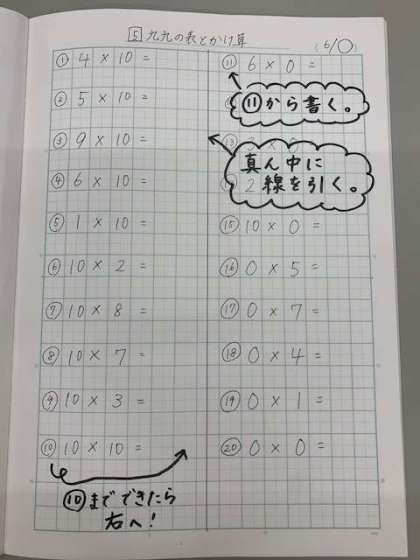 5 九九の表とかけ算 (6/○)
① 4 × 10 =
② 5 × 10 =
③ 9 × 10 =
④ 6 × 10 =
⑤ 1 × 10 =
⑥ 10 × 2 =
⑦ 10 × 8 =
⑧ 10 × 7 =
⑨ 10 × 3 =
⑩ 10 × 10 =
⑩まで できたら
右へ!
⑪ 6 × 0 =
⑪から書く。
⑬
真ん中に
線を引く。
2
⑮ 10 × 0 =
⑯ 0 × 5 =
⑰ 0 × 7 =
⑱ 0 × 4 =
⑲ 0 × 1 =
⑳ 0 × 0 =